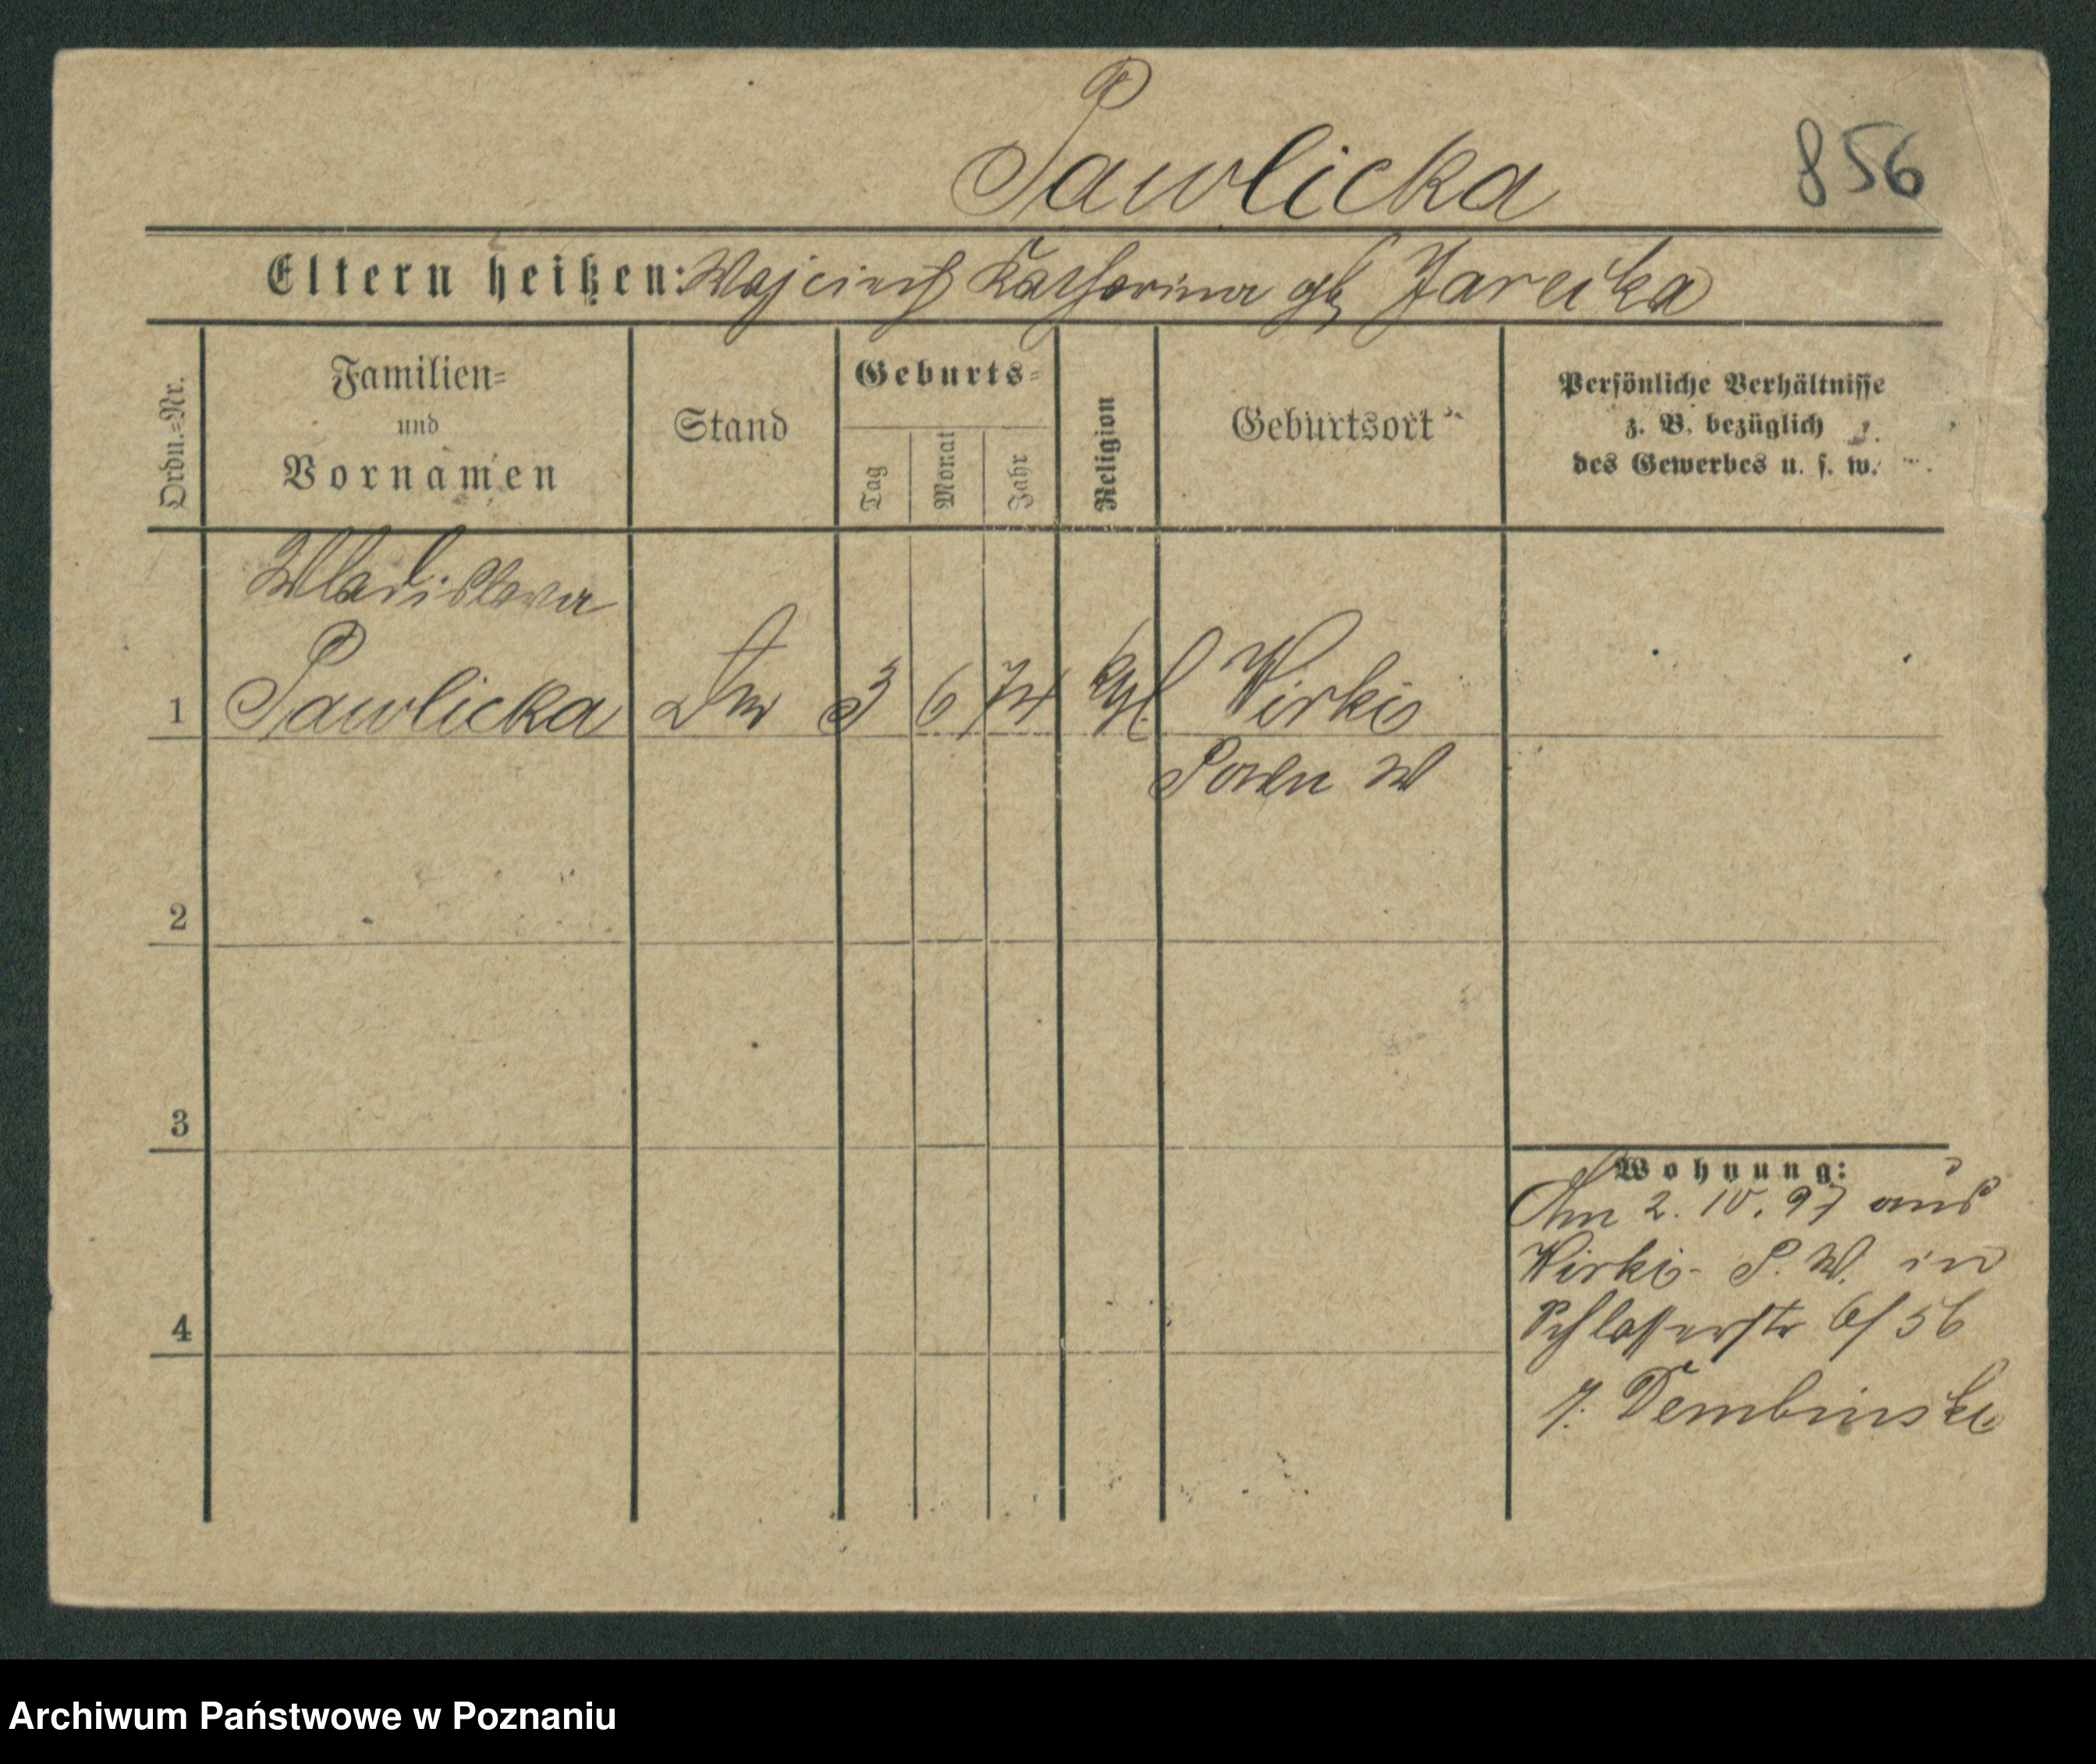 Pawlicka
856
Eltern heißen: Wojciech Katharina gb Jarecka
Ordn.=Nr.
Familien=
und
Vornamen
Stand
Geburts=
Tag
Monat
Jahr
Religion
Geburtsort
Persönliche Verhältnisse
z. B. bezüglich
des Gewerbes u. s. w.
Wladislawa
1 Pawlicka 3 6 74 kthl Wirki
Posen W
2
3
4
Wohnung:
Am 2. 10. 97 aus
Wirki P. W. in
Schlosserstr 6/56
Dembinski
Archiwum Państwowe w Poznaniu